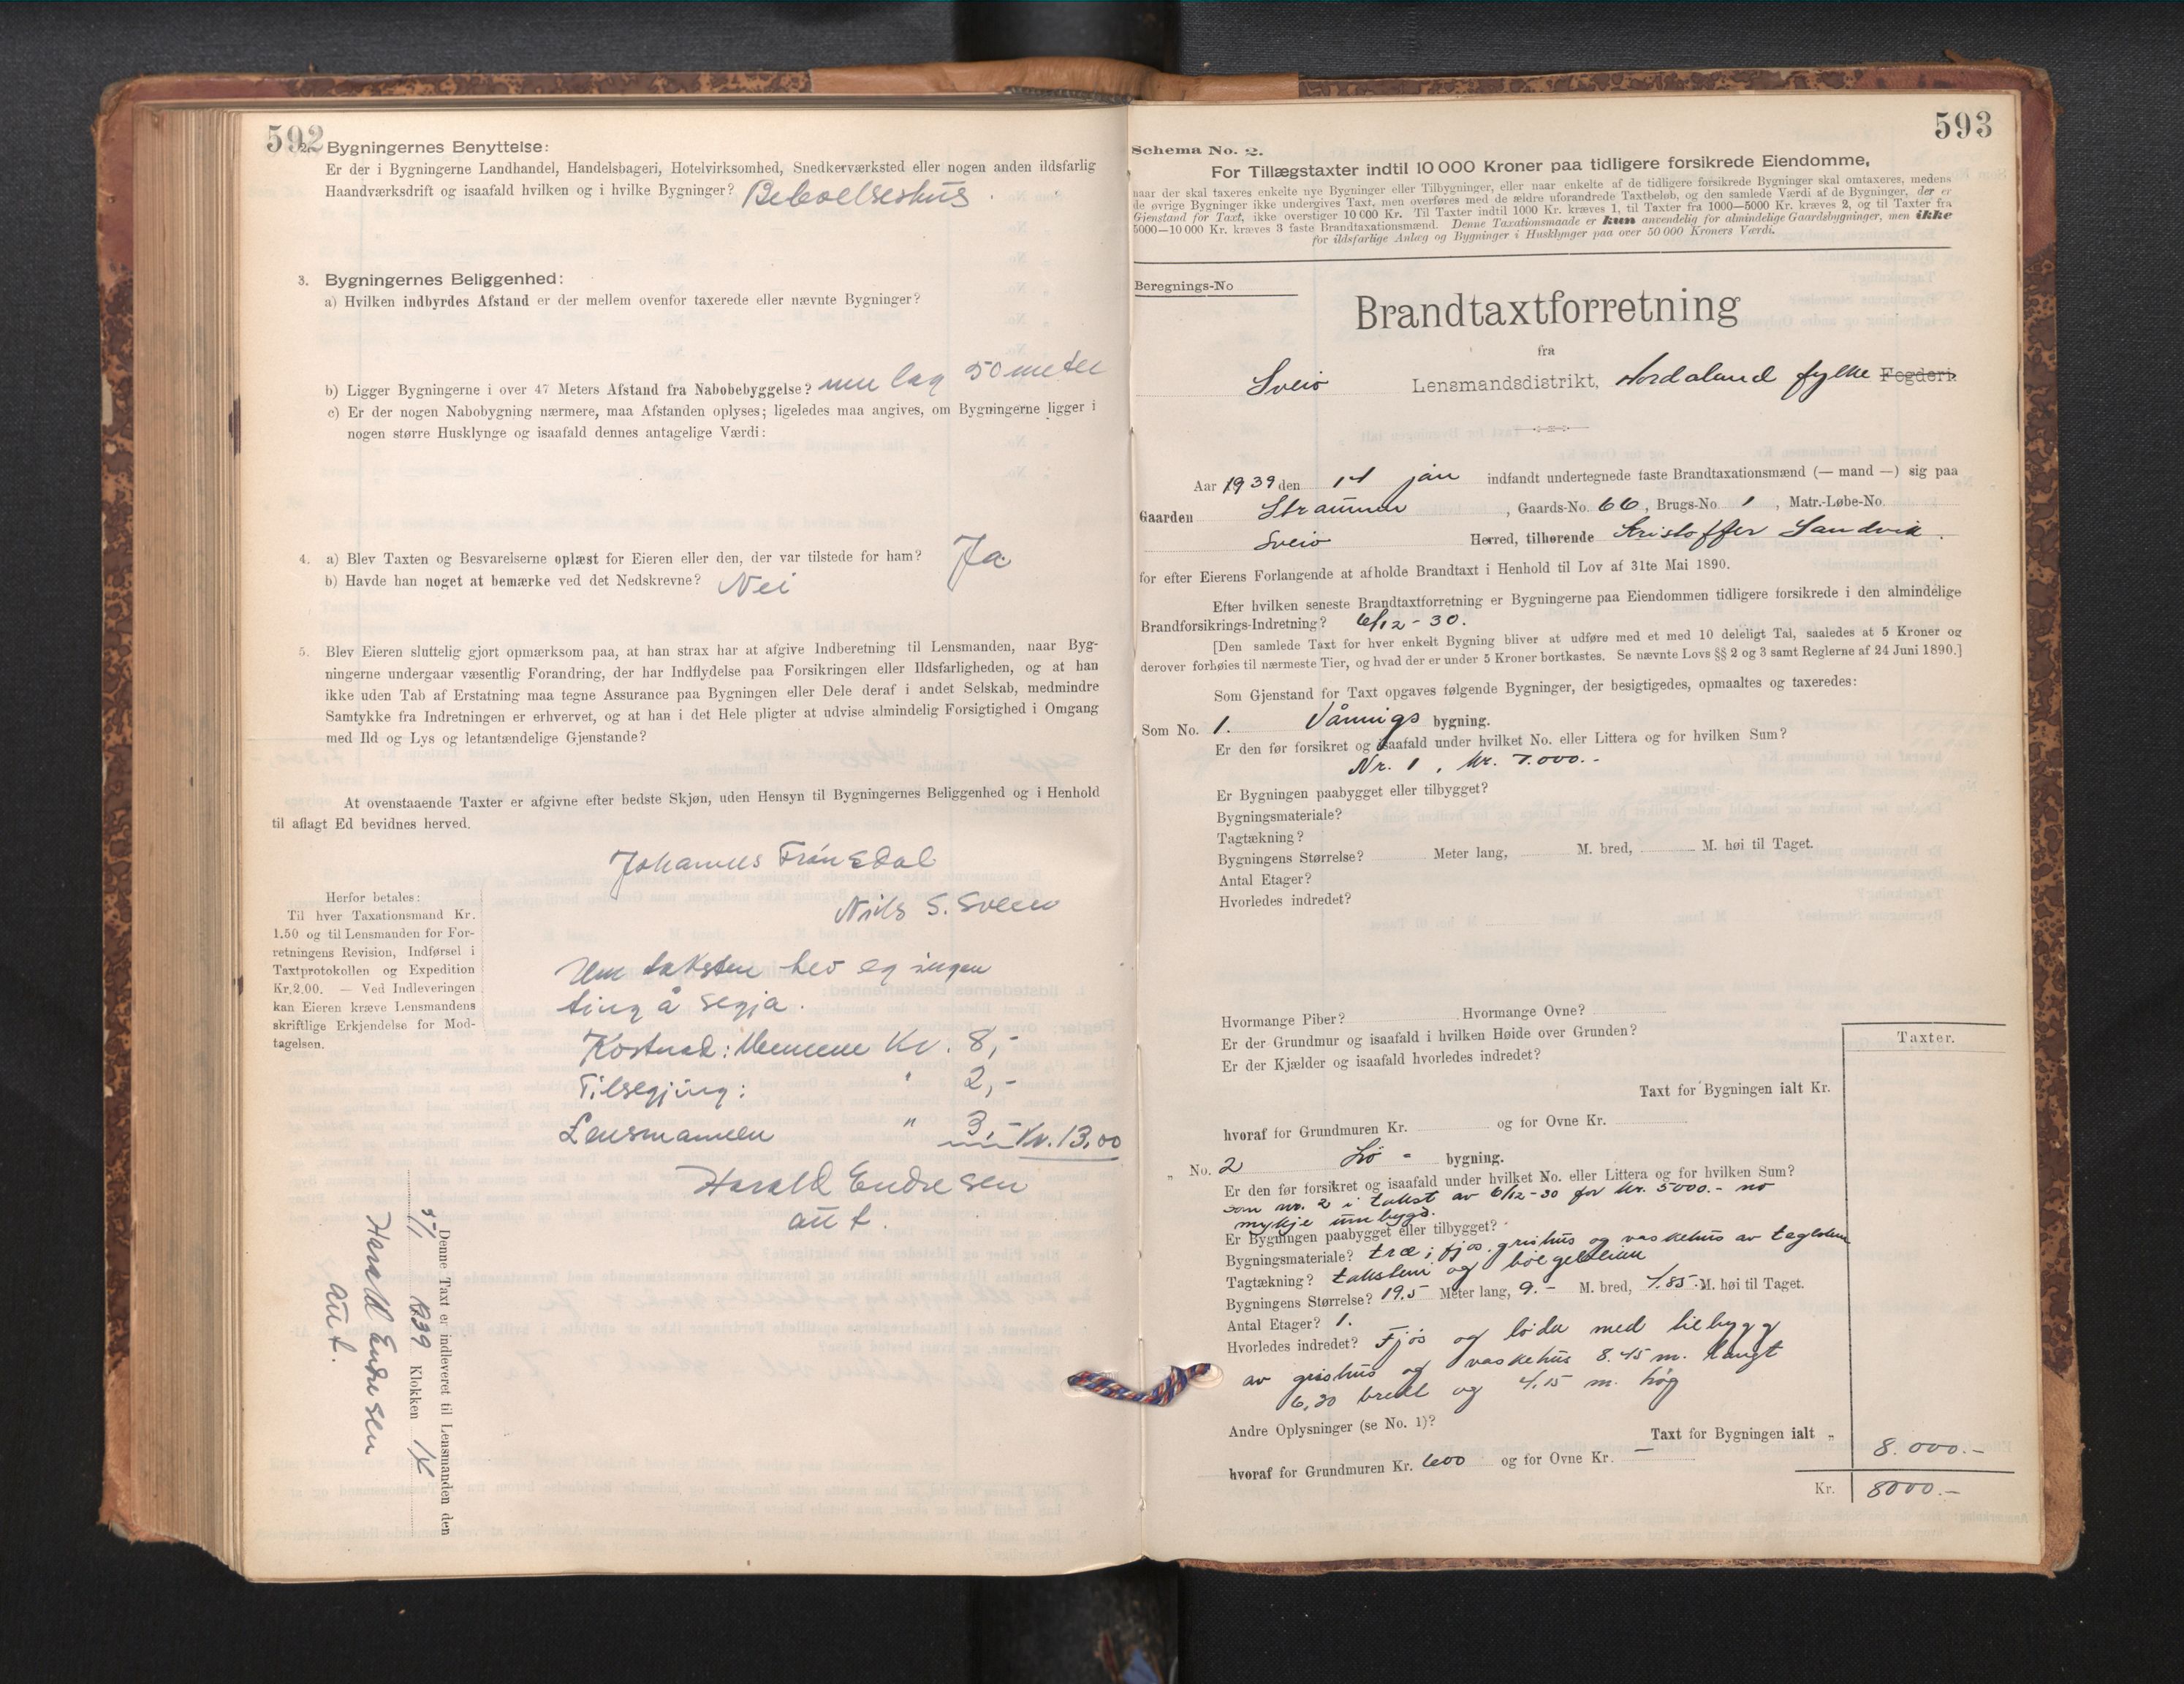 592
2. Bygningernes Benyttelse:
Er der i Bygningerne Landhandel, Handelsbageri, Hotelvirksomhed, Snedkerværksted eller nogen anden ildsfarlig
Haandværksdrift og isaafald hvilken og i hvilke Bygninger? Beboelseshus.
3. Bygningernes Beliggenhed:
a) Hvilken indbyrdes Afstand er der mellem ovenfor taxerede eller nævnte Bygninger?
b) Ligger Bygningerne i over 47 Meters Afstand fra Nabobebyggelse? um lag 50 meter
c) Er der nogen Nabobygning nærmere, maa Afstanden oplyses; ligeledes maa angives, om Bygningerne ligger i
nogen større Husklynge og isaafald dennes antagelige Værdi:
4. a) Blev Taxten og Besvarelserne oplæst for Eieren eller den, der var tilstede for ham? Ja
b) Havde han noget at bemærke ved det Nedskrevne? Nei
5. Blev Eieren sluttelig gjort opmærksom paa, at han strax har at afgive Indberetning til Lensmanden, naar Byg-
ningerne undergaar væsentlig Forandring, der har Indflydelse paa Forsikringen eller Ildsfarligheden, og at han
ikke uden Tab af Erstatning maa tegne Assurance paa Bygningen eller Dele deraf i andet Selskab, medmindre
Samtykke fra Indretningen er erhvervet, og at han i det Hele pligter at udvise almindelig Forsigtighed i Omgang
med Ild og Lys og letantændelige Gjenstande?
At ovenstaaende Taxter er afgivne efter bedste Skjøn, uden Hensyn til Bygningernes Beliggenhed og i Henhold
til aflagt Ed bevidnes herved.
Johannes
Nils S. Sveen
Herfor betales:
Til hver Taxationsmand Kr.
1.50 og til Lensmanden for For-
retningens Revision, Indførsel i
Taxtprotokollen og Expedition
Kr. 2.00. — Ved Indleveringen
kan Eieren kræve Lensmandens
skriftlige Erkjendelse for Mod-
tagelsen.
Um taksten hev eg ingen
ting å segja.
Kostnad: Mennene Kr. 8,-
Tilsegjing: " 2,-
Lensmannen " 3,- Kr. 13,00
Harald Endresen
aut.
Denne Taxt er indleveret til Lensmanden den
5/1 1939 Klokken
Harald Endresen
aut.
593
Schema No. 2.
For Tillægstaxter indtil 10 000 Kroner paa tidligere forsikrede Eiendomme,
naar der skal taxeres enkelte nye Bygninger eller Tilbygninger, eller naar enkelte af de tidligere forsikrede Bygninger skal omtaxeres, medens
de øvrige Bygninger ikke undergives Taxt, men overføres med de ældre uforandrede Taxtbeløb, og den samlede Værdi af de Bygninger, der er
Gjenstand for Taxt, ikke overstiger 10 000 Kr. Til Taxter indtil 1000 Kr. kræves 1, til Taxter fra 1000—5000 Kr. kræves 2, og til Taxter fra
5000—10 000 Kr. kræves 3 faste Brandtaxationsmænd. Denne Taxationsmaade er kun anvendelig for almindelige Gaardsbygninger, men ikke
for ildsfarlige Anlæg og Bygninger i Husklynger paa over 50 000 Kroners Værdi.
Beregnings-No
Brandtaxtforretning
fra
Sveio Lensmandsdistrikt, Hordaland fylke Fogderi.
Aar 1939 den 14 jan indfandt undertegnede faste Brandtaxationsmænd (— mand —) sig paa
Gaarden Straumen, Gaards-No. 66, Brugs-No 1, Matr.-Løbe-No.
Sveio Herred, tilhørende Kristoffer Sandvik.
for efter Eierens Forlangende at afholde Brandtaxt i Henhold til Lov af 31te Mai 1890.
Efter hvilken seneste Brandtaxtforretning er Bygningerne paa Eiendommen tidligere forsikrede i den almindelige
Brandforsikrings-Indretning? 6/12 - 30.
[Den samlede Taxt for hver enkelt Bygning bliver at udføre med et med 10 deleligt Tal, saaledes at 5 Kroner og
derover forhøies til nærmeste Tier, og hvad der er under 5 Kroner bortkastes. Se nævnte Lovs §§ 2 og 3 samt Reglerne af 24 Juni 1890.]
Som Gjenstand for Taxt opgaves følgende Bygninger, der besigtigedes, opmaaltes og taxeredes:
Som No. 1. Vånings bygning.
Er den før forsikret og isaafald under hvilket No. eller Littera og for hvilken Sum?
Nr. 1, kr. 7.000.-
Er Bygningen paabygget eller tilbygget?
Bygningsmateriale?
Tagtækning?
Bygningens Størrelse? Meter lang, M. bred, M. høi til Taget.
Antal Etager?
Hvorledes indredet?
Hvormange Piber? Hvormange Ovne?
Er der Grundmur og isaafald i hvilken Høide over Grunden?
Er der Kjælder og isaafald hvorledes indredet?
Taxter.
Taxt for Bygningen ialt Kr.
hvoraf for Grundmuren Kr. og for Ovne Kr.
„ No. 2 Lø - bygning.
Er den før forsikret og isaafald under hvilket No. eller Littera og for hvilken Sum?
som nr. 2 i takst av 6/12-30 for kr. 5000.- no
mykje umbygd.
Er Bygningen paabygget eller tilbygget?
Bygningsmateriale? træ i fjos. grishus og vaskehus av teglstein
Tagtækning? takstein og bølgeblikk
Bygningens Størrelse? 19.5 Meter lang, 9.- M. bred, 4.85 M. høi til Taget.
Antal Etager? 1.
Hvorledes indredet? Fjøs og løda med tilbygg
av grishus og vaskehus 8.45 m. langt
6,30 bredt og 4,15 m. høg
Andre Oplysninger (se No. 1)?
Taxt for Bygningen ialt „ 8.000.-
hvoraf for Grundmuren Kr. 600 og for Ovne Kr. —
Kr. 8000.-